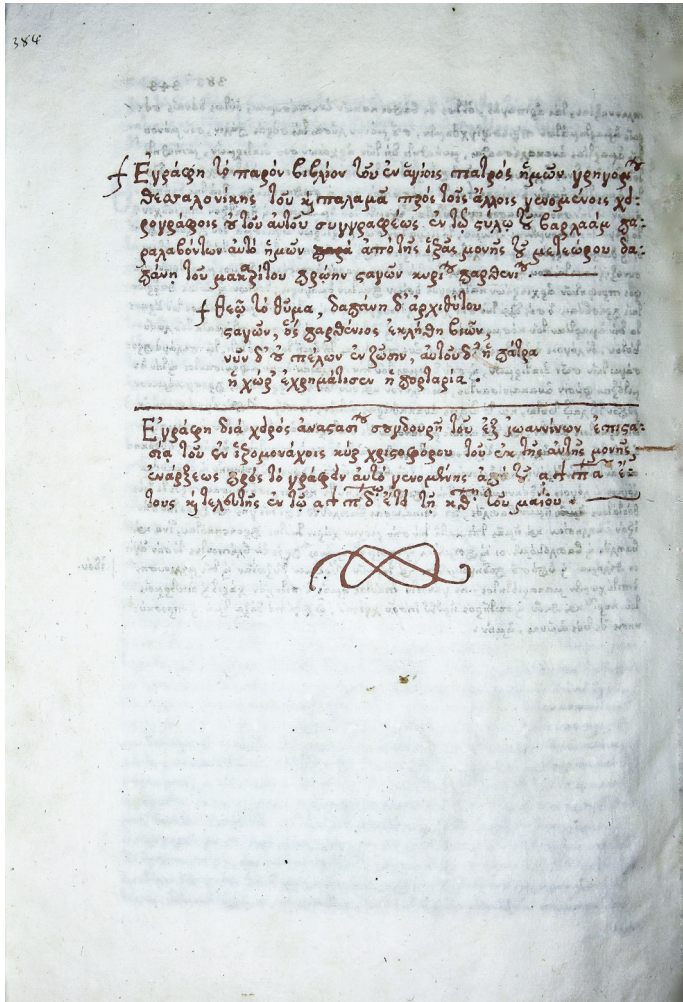 384
† Ἐγράφη τὸ παρὸν βιβλίον τοῦ ἐν ἁγίοις πατρὸς ἡμῶν γρηγορίου
θεσαλονίκης τοῦ κ παλαμᾶ πρὸς τοῖς ἄλλοις γενομένοις χει-
ρογράφοις τοῦ αὐτοῦ συγγραφέως ἐν τῷ ξύλῳ τοῦ βαρλαὰμ πα-
ραλαβόντων αὐτὸ ἡμῶν ἀπὸ τῆς μονῆς τοῦ μετεώρου δα-
πάνῃ τοῦ πρώην σταγῶν κυρίου παρθενίου
† θεῷ τὸ θῦμα, δαπάνη δ' ἀρχιθύτου
σταγῶν, ὃς παρθένιος ἐκλήθη βιῶν
νῦν δ' πέλων ἐν ζῶσιν, αὐτοῦ δ' ἡ πάτρα
ἡ χώρα ἐχρημάτισεν ἡ πορταρία.
Ἐγράφη διὰ χειρὸς ἀναστασίου τοῦ ἐξ ἰωαννίνων ἐπιστα-
σίᾳ τοῦ ἐν ἱερομονάχοις κὺρ χριστοφόρου τοῦ ἐκ τῆς αὐτῆς μονῆς,
ἐνάρξεως πρὸς τὸ γραφὲν αὐτὸ γενομένης ἀπὸ τοῦ αψπα ἔ-
τους κ τελευτῆς ἐν τῷ αψπδ ἔτι τῇ κθ τοῦ μαΐου.